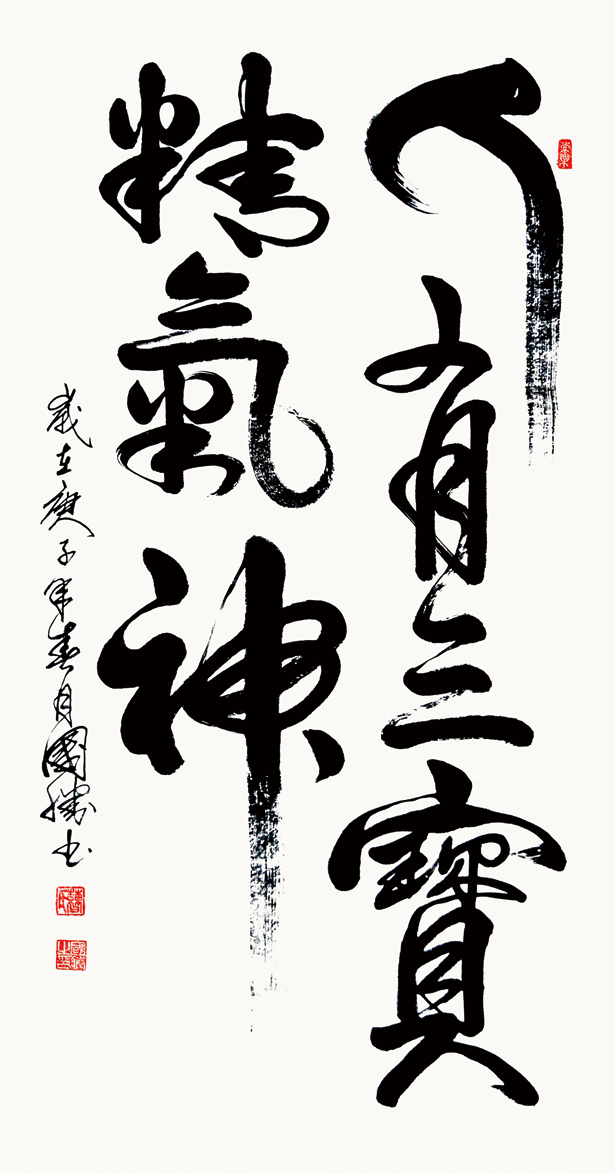 人有三寶
精氣神
歲在庚子年春月國勝书